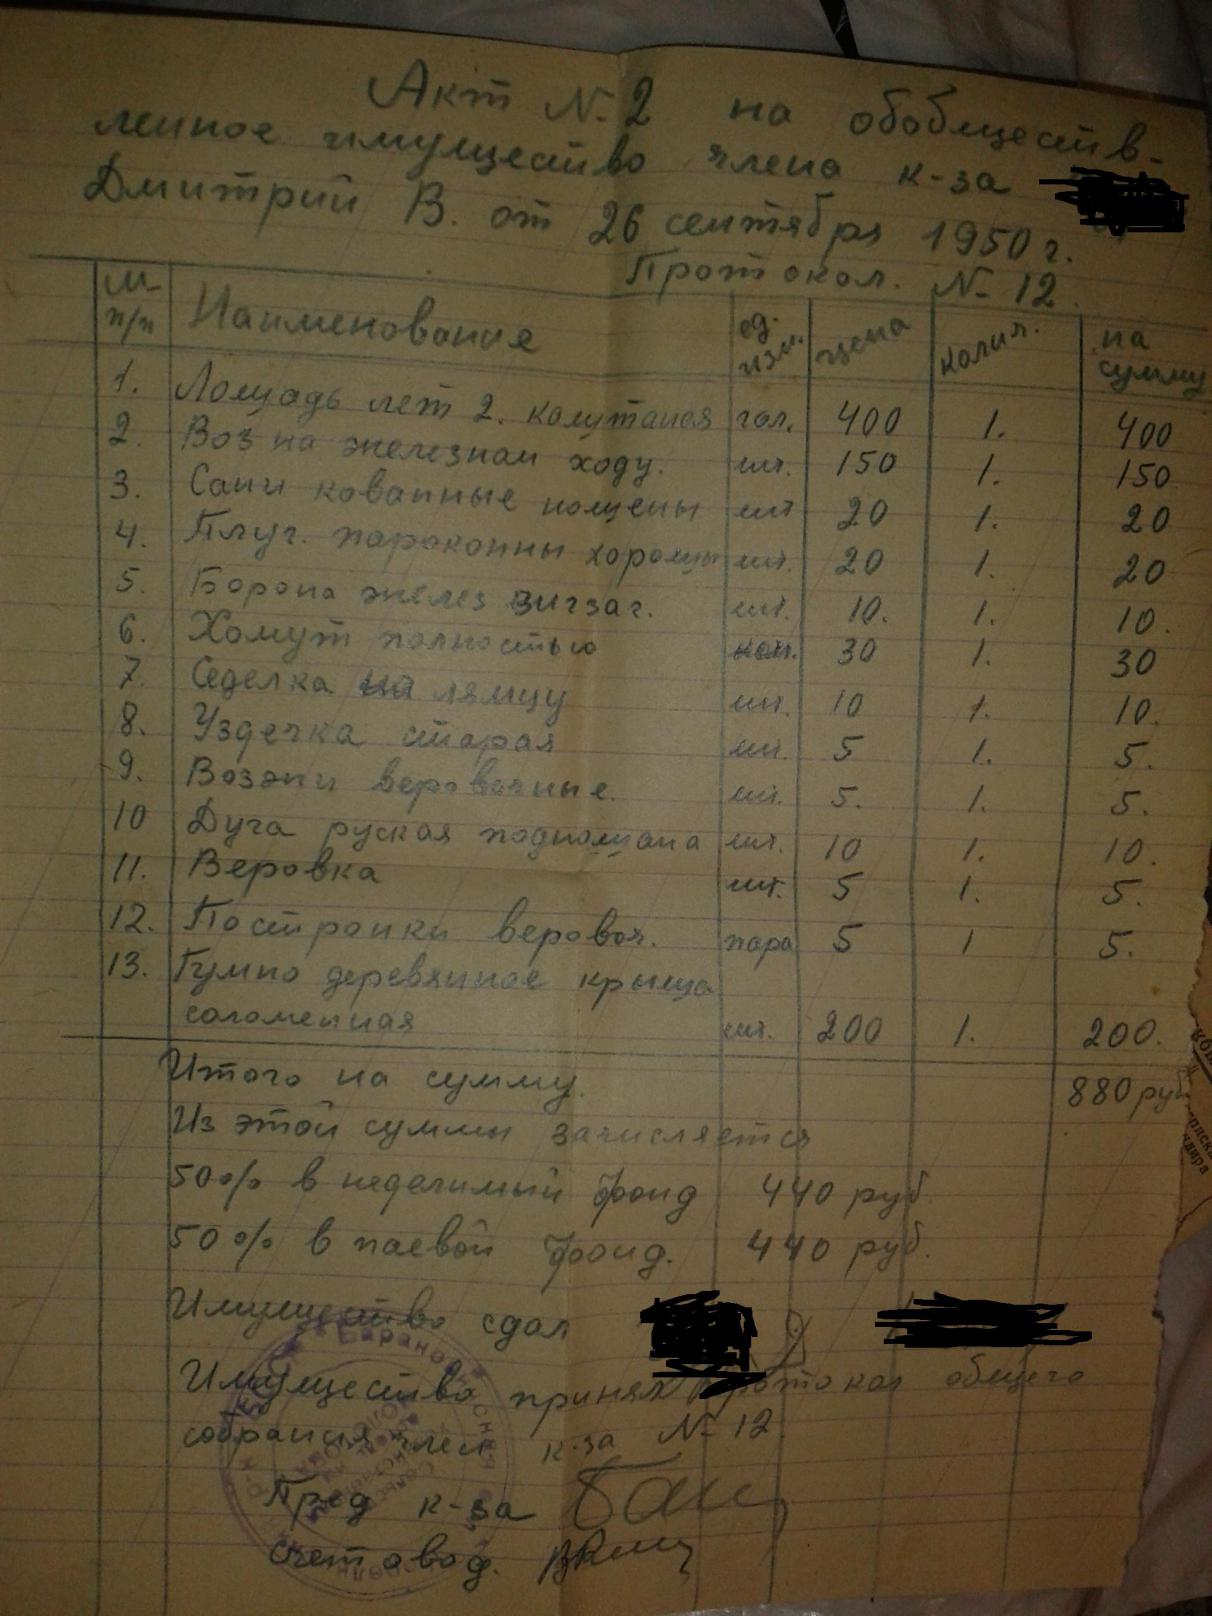 Акт № 2 на обобществ-
ленное имущество члена к-за
Дмитрий В. от 26 сентября 1950 г.
Протокол. № 12.
№ п/п Наименование ед. изм. цена колич. на сумму
1. Лошадь лет 2. каштаная гол. 400 1. 400
2. Воз на железном ходу. шт. 150 1. 150
3. Сани кованные ношены шт 20 1. 20
4. Плуг. пароконны хорошы шт. 20 1. 20
5. Борона желез зигзаг. шт. 10. 1. 10.
6. Хомут полностью ком. 30 1. 30
7. Седелка лямцу шт. 10 1. 10.
8. Уздечка старая шт. 5 1. 5.
9. Возжи веровочные. шт. 5. 1. 5.
10 Дуга руская подношана шт. 10 1. 10.
11. Веровка шт. 5 1. 5.
12. Постронки веровоч. пара 5 1 5.
13. Гумно деревянное крыша
соломенная шт. 200 1. 200.
Итого на сумму. 880 руб.
Из этой суммы зачисляется
50% в неделимый фонд 440 руб.
50% в паевой фонд. 440 руб.
Имущество сдал
Имущество принял протокол общего
собрания член к-за № 12
Пред к-за
Счетовод.